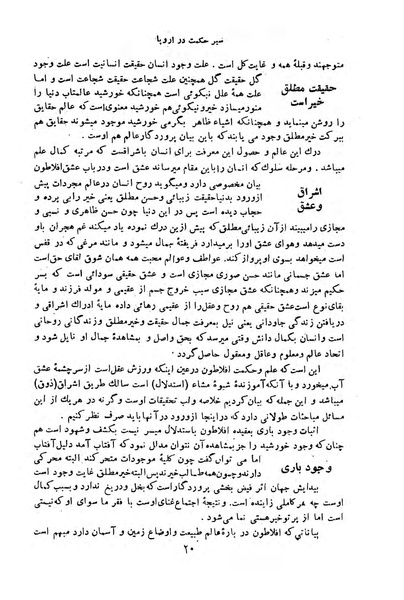 سیر حکمت در اروپا
متوجهند و قبلهٔ همه و غایت کل است . علت وجود انسان حقیقت انسانیت است علت وجود
گل حقیقت گل همچنین علت شجاعت حقیقت شجاعت است و اما
علت همهٔ علل نیکوئی است همچنانکه خورشید عالمتاب دنیا را
منور میسازد خیر و نیکوئی هم خورشید معنوی است که عالم حقایق
حقیقت مطلق
خیر است
را روشن مینماید و همچنانکه اشیاء ظاهر بگرمی خورشید موجود میشوند حقایق هم
ببرکت خیر مطلق وجود می یابند که باین بیان پروردگار عالم هم اوست .
درک این عالم و حصول این معرفت برای انسان باشراقست که مرتبه کمال علم
میباشد . و مرحله سلوک که انسان را باین مقام میرساند عشق است و در باب عشق افلاطون
بیان مخصوصی دارد و میگوید روح انسان در عالم مجردات پیش
از ورود بدنیا حقیقت زیبائی و حسن مطلق یعنی خیر را بی پرده و
حجاب دیده است پس در این دنیا چون حسن ظاهری و نسبی و
اشراق
و عشق
مجازی را میبیند از آن زیبائی مطلق که پیش از این درک نموده یاد میکند غم هجران باو
دست میدهد و هوای عشق او را برمیدارد فریفتهٔ جمال میشود و مانند مرغی که در قفس
است میخواهد بسوی او پرواز کند . عواطف و عوالم محبت همه همان شوق لقای حق است
اما عشق جسمانی مانند حسن صوری مجازی است و عشق حقیقی سودائی است که بسر
حکیم میزند و همچنانکه عشق مجازی سبب خروج جسم از عقیمی و مولد فرزند و مایهٔ
بقای نوع است عشق حقیقی هم روح و عقل را از عقیمی رهائی داده مایهٔ ادراك اشراقی و
دریافتن زندگی جاودانی یعنی نیل بمعرفت جمال حقیقت و خیر مطلق و زندگانی روحانی
است و انسان بکمال دانش وقتی میرسد که بحق واصل و بمشاهدهٔ جمال او نایل شود و
اتحاد عالم و معلوم و عاقل و معقول حاصل گردد .
این است که علم و حکمت افلاطون با اینکه ورزش عقل است از سرچشمهٔ عشق
آب میخورد و با آنکه آموزندهٔ شیوهٔ مشاء (استدلال) است سالك طریق اشراق (ذوق)
میباشد و این جمله که بیان کردیم خلاصه و لب تحقیقات اوست و گرنه در هریك از این
مسائل مباحثات طولانی دارد که در اینجا از ورود در آنها باید صرف نظر کنیم .
اثبات وجود باری بعقیده افلاطون باستدلال میسر نیست بکشف و شهود است هم
چنان که وجود خورشید را جز بمشاهده آن نتوان مدلل نمود که آفتاب آمد دلیل آفتاب
اما می توان گفت چون کلیهٔ موجودات متحرکند البته محرکی
دارند و چون همه طالب خیرند پس البته خیر مطلق غایت وجود است
وجود باری
پیدایش جهان اثر فیض بخشی پروردگار است که بخل و دریغ ندارد و بسبب کمال
اوست چه هر کاملی زاینده است . و وجود نتیجهٔ اجتماع غنای اوست با فقر ما سوای او که نیستی
است اما از پرتو خیر هستی نما می شود .
بیاناتی که افلاطون در بارهٔ عالم طبیعت و اوضاع زمین و آسمان دارد مبهم است
۲۰